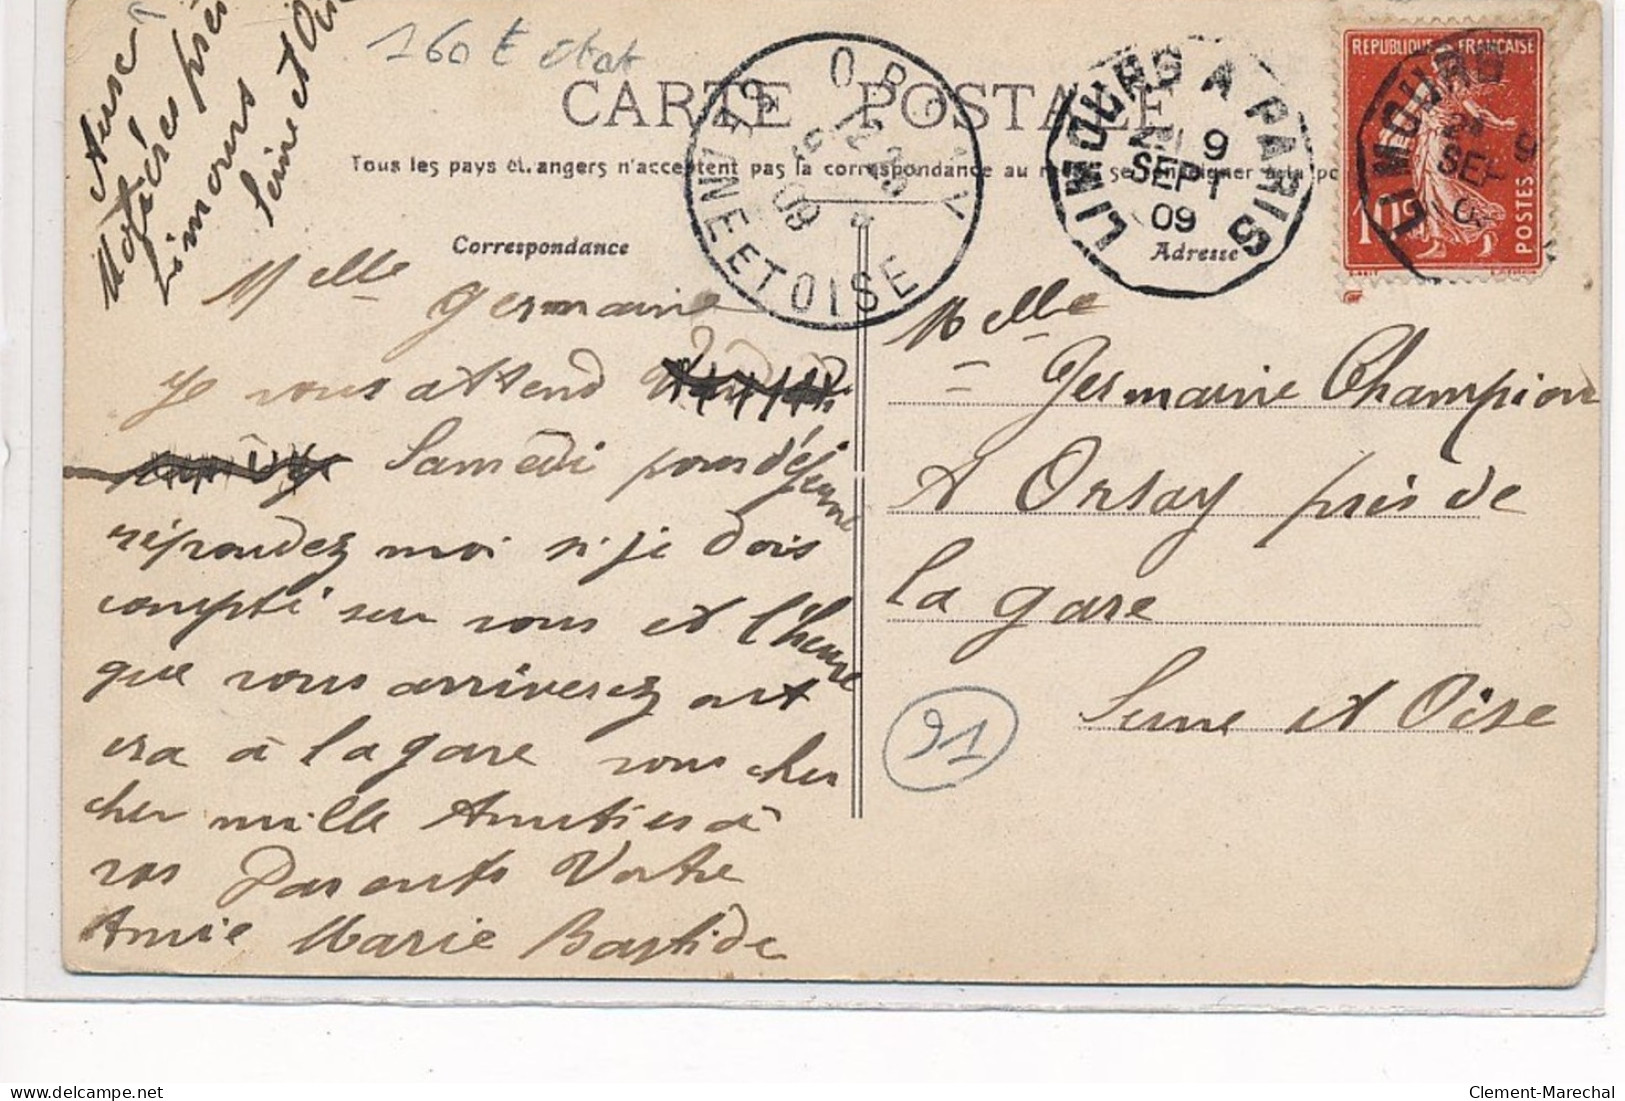 160 € état
CARTE POSTALE
Tous les pays étrangers n'acceptent pas la correspondance au recto se renseigner à la po
Correspondance
Adresse
près
Limours
Seine et Ois
ORSAY
SEINE ET OISE
09
LIMOURS A PARIS
9
SEPT
09
REPUBLIQUE FRANÇAISE
10c
POSTES
LIMOURS
SEP
9
Melle Germaine
je vous attend
Samedi pour déjeuné
répondez moi si je dois
compté sur vous et l'heure
que vous arriverez ont
ira à la gare vous cher
cher mille Amitiés à
vos Parents Votre
Amie Marie Bastide
Melle
Germaine Champion
A Orsay près de
la gare
Seine et Oise
91
Clement-Marechal